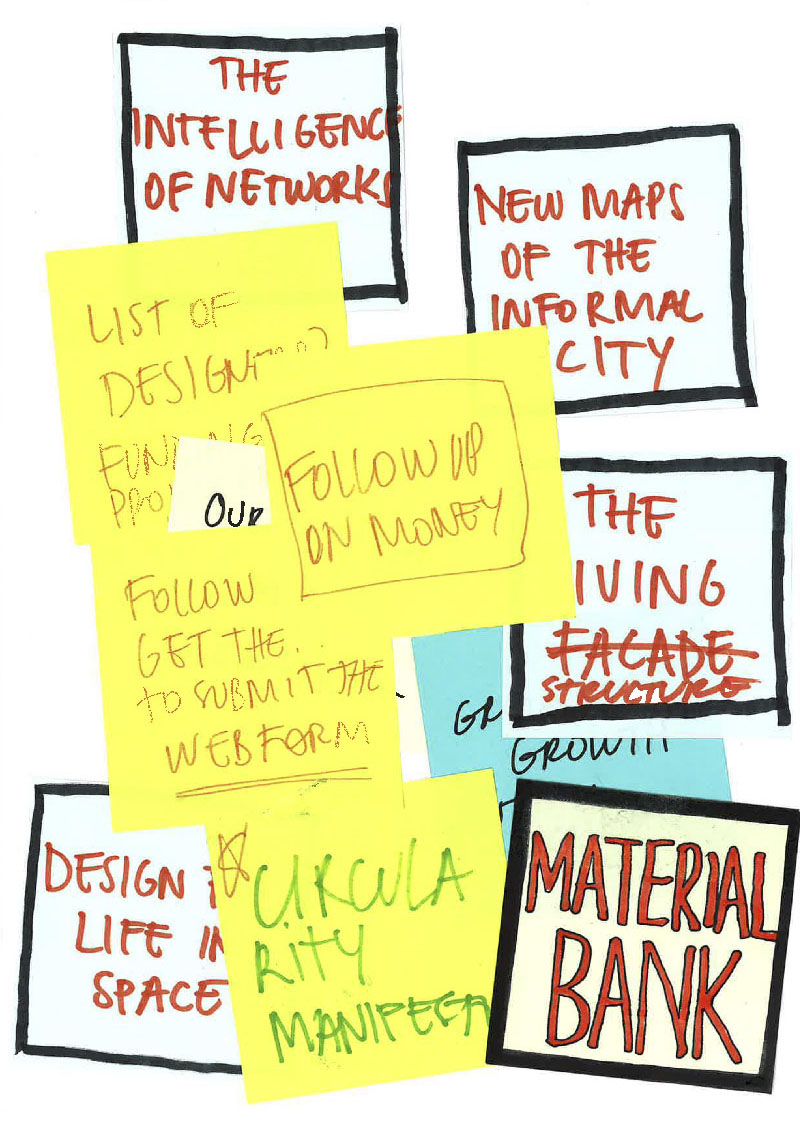 THE
INTELLIGENCE
OF NETWORKS
NEW MAPS
OF THE
INFORMAL
CITY
LIST OF
DESIGN
FOLLOW UP
ON MONEY
OUR
THE
LIVING
FACADE
STRUCTURE
FOLLOW
GET THE..
TO SUBMIT THE
WEBFORM
GR
GROWTH
DESIGN
LIFE IN
SPACE
CIRCULA
RITY
MANIFEST
MATERIAL
BANK